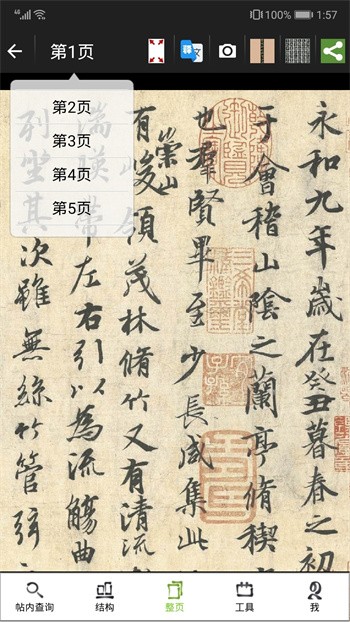 4G 100% 1:57
第1页
第2页
第3页
第4页
第5页
永和九年歲在癸丑暮春之初
于會稽山陰之蘭亭脩禊
也羣賢畢至少長咸集此
有崇山峻領茂林脩竹又有清流
湍暎帶左右引以為流觴曲
列坐其次雖無絲竹管弦
帖内查询
结构
整页
工具
我